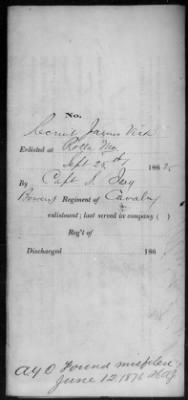 No.
James
Enlisted at Rolla Mo
Sept 25 186
By Capt
Bowen's Regiment of Cavalry
enlistment; last served in company ( )
Reg't of
Discharged 186
A G O Found misfiled
June 12, 1876